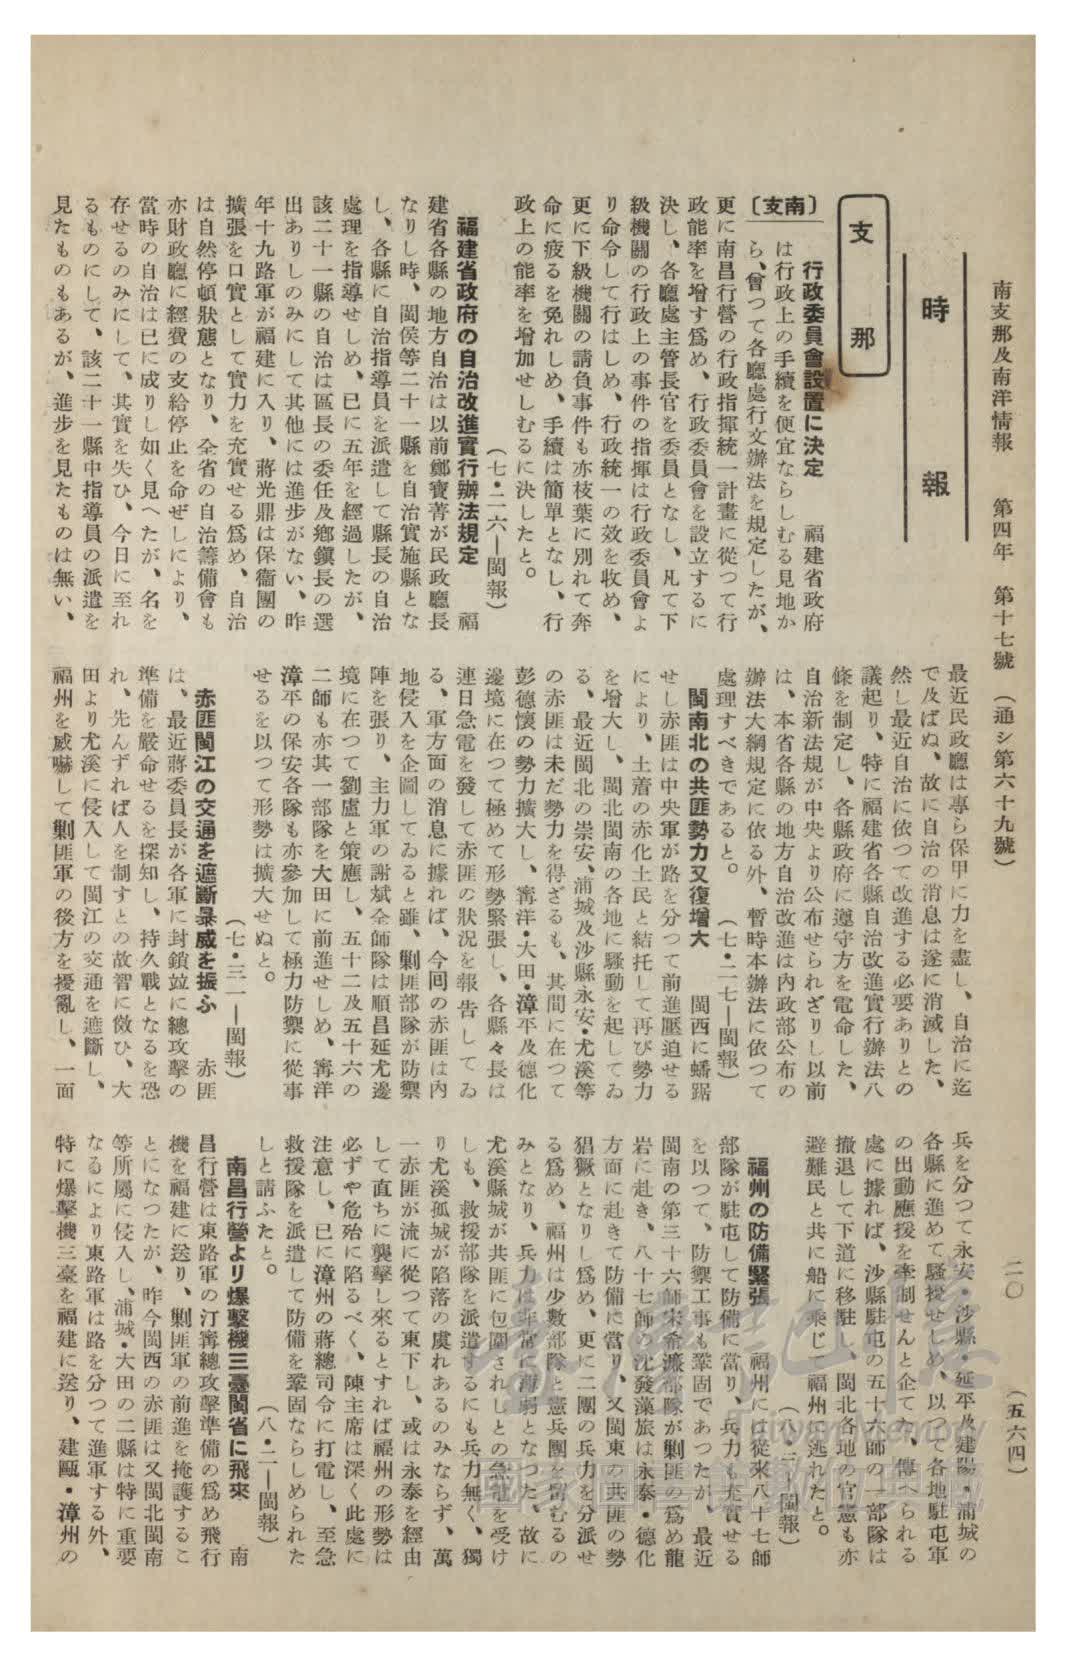 南支那及南洋情報　第四年　第十七號　(通シ第六十九號)
二〇
(五六四)
時報
支那
〔南支〕
行政委員會設置に決定　福建省政府
は行政上の手續を便宜ならしむる見地か
ら、曾つて各廳處行文辦法を規定したが、
更に南昌行營の行政指揮統一計畫に從つて行
政能率を增す爲め、行政委員會を設立するに
決し、各廳處主管長官を委員となし、凡て下
級機關の行政上の事件の指揮は行政委員會よ
り命令して行はしめ、行政統一の效を收め、
更に下級機關の請負事件も亦枝葉に別れて奔
命に疲るを免れしめ、手續は簡單となし、行
政上の能率を增加せしむるに決したと。
(七・二六―閩報)
福建省政府の自治改進實行辦法規定　福
建省各縣の地方自治は以前鄭寶菁が民政廳長
なりし時、閩侯等二十一縣を自治實施縣とな
し、各縣に自治指導員を派遣して縣長の自治
處理を指導せしめ、已に五年を經過したが、
該二十一縣の自治は區長の委任及鄕鎭長の選
出ありしのみにして其他には進步がない、昨
年十九路軍が福建に入り、蔣光鼎は保衞團の
擴張を口實として實力を充實せる爲め、自治
は自然停頓狀態となり、全省の自治籌備會も
亦財政廳に經費の支給停止を命ぜしにより、
當時の自治は已に成りし如く見へたが、名を
存せるのみにして、其實を失ひ、今日に至れ
るものにして、該二十一縣中指導員の派遣を
見たものもあるが、進步を見たものは無い、
最近民政廳は專ら保甲に力を盡し、自治に迄
で及ばぬ、故に自治の消息は遂に消滅した、
然し最近自治に依つて改進する必要ありとの
議起り、特に福建省各縣自治改進實行辦法八
條を制定し、各縣政府に遵守方を電命した、
自治新法規が中央より公布せられざりし以前
は、本省各縣の地方自治改進は內政部公布の
辦法大綱規定に依る外、暫時本辦法に依つて
處理すべきであると。　(七・二七―閩報)
閩南北の共匪勢力又復增大　閩西に蟠踞
せし赤匪は中央軍が路を分つて前進壓迫せる
により、土着の赤化土民と結托して再び勢力
を增大し、閩北閩南の各地に騷動を起してゐ
る、最近閩北の崇安、浦城及沙縣永安・尤溪等
の赤匪は未だ勢力を得ざるも、其間に在つて
彭德懷の勢力擴大し、寗洋・大田・漳平及德化
邊境に在つて極めて形勢緊張し、各縣々長は
連日急電を發して赤匪の狀況を報告してゐ
る、軍方面の消息に據れば、今回の赤匪は內
地侵入を企圖してゐると雖、剿匪部隊が防禦
陣を張り、主力軍の謝斌全師隊は順昌延尤邊
境に在つて劉盧と策應し、五十二及五十六の
二師も亦其一部隊を大田に前進せしめ、寗洋
漳平の保安各隊も亦參加して極力防禦に從事
せるを以つて形勢は擴大せぬと。
(七・三一―閩報)
赤匪閩江の交通を遮斷暴威を振ふ　赤匪
は、最近蔣委員長が各軍に封鎖竝に總攻擊の
準備を嚴命せるを探知し、持久戰となるを恐
れ、先んずれば人を制すとの故智に傚ひ、大
田より尤溪に侵入して閩江の交通を遮斷し、
福州を威嚇して剿匪軍の後方を擾亂し、一面
兵を分つて永安・沙縣・延平及建陽・浦城の
各縣に進めて騷擾せしめ、以つて各地駐屯軍
の出動應援を牽制せんと企てた、傳へられる
處に據れば、沙縣駐屯の五十六師の一部隊は
撤退して下道に移駐し、閩北各地の官憲も亦
避難民と共に船に乘じて福州に逃れたと。
(八・二―閩報)
福州の防備緊張　福州には從來八十七師
部隊が駐屯して防備に當り、兵力も充實せる
を以つて、防禦工事も鞏固であつたが、最近
閩南の第三十六師宋希濂部隊が剿匪の爲め龍
岩に赴き、八十七師の沈發藻旅は永泰・德化
方面に赴きて防備に當り、又閩東の共匪の勢
猖獗となりし爲め、更に二團の兵力を分派せ
る爲め、福州は少數部隊と憲兵團を留むるの
みとなり、兵力は非常に薄弱となつた、故に
尤溪縣城が共匪に包圍されしとの急電を受け
しも、救援部隊を派遣するにも兵力無く、獨
り尤溪孤城が陷落の虞れあるのみならず、萬
一赤匪が流に從つて東下し、或は永泰を經由
して直ちに襲擊し來るとすれば福州の形勢は
必ずや危殆に陷るべく、陳主席は深く此處に
注意し、已に漳州の蔣總司令に打電し、至急
救援隊を派遣して防備を鞏固ならしめられた
しと請ふたと。　(八・二―閩報)
南昌行營より爆擊機三臺閩省に飛來　南
昌行營は東路軍の汀寗總攻擊準備の爲め飛行
機を福建に送り、剿匪軍の前進を掩護するこ
とになつたが、昨今閩西の赤匪は又閩北閩南
等所屬に侵入し、浦城・大田の二縣は特に重要
なるにより東路軍は路を分つて進軍する外、
特に爆擊機三臺を福建に送り、建甌・漳州の
臺灣記憶
Taiwan Memory
國家圖書館數位典藏